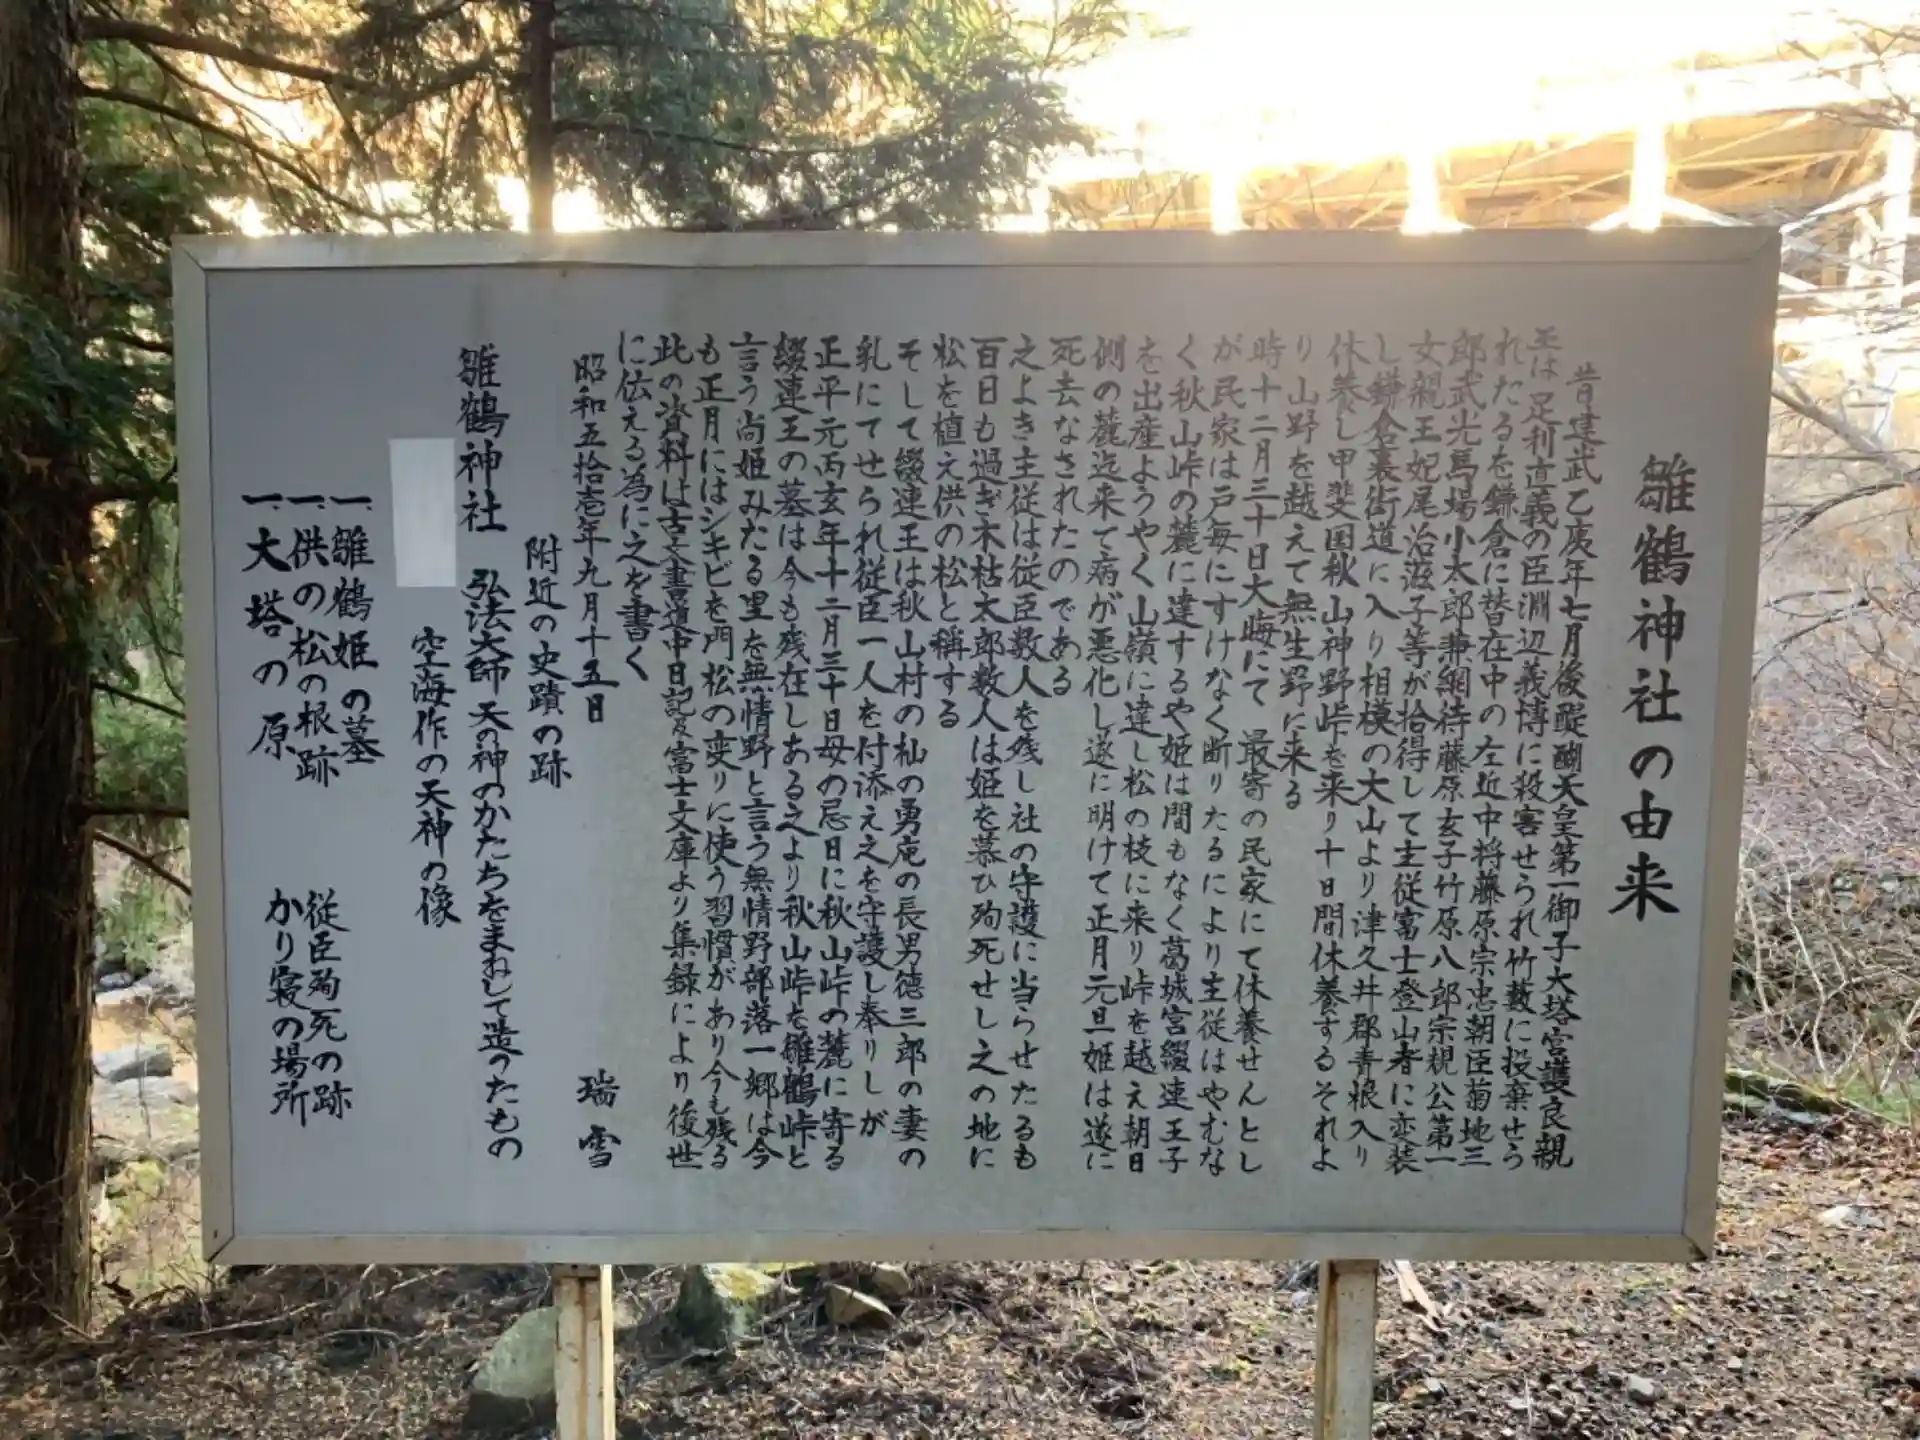 雛鶴神社の由来
昔建武乙庚年七月後醍醐天皇第一御子大塔宮護良親
王は足利直義の臣淵辺義博に殺害せられ竹薮に投棄せら
れたるを鎌倉に替在中の左近中将藤原宗忠朝臣菊地三
郎武光馬場小太郎兼綱待藤原玄子竹原八郎宗規公第一
女親王妃尾治滋子等が拾得して主従富士登山者に変装
し鎌倉裏街道に入り相模の大山より津久井郡青根入り
休養し甲斐国秋山神野峠を来り十日間休養するそれよ
り山野を越えて無生野に来る
時十二月三十日大晦にて最寄の民家にて休養せんとし
が民家は戸毎にすけなく断りたるにより主従はやむな
く秋山峠の麓に達するや姫は間もなく葛城宮綴連王子
を出産ようやく山嶺に達し松の枝に来り峠を越え朝日
側の麓迄来て病が悪化し遂に明けて正月元旦姫は遂に
死去なされたのである
之よき主従は従臣数人を残し社の守護に当らせたるも
百日も過ぎ木枯太郎数人は姫を慕ひ殉死せし之の地に
松を植え供の松と稱する
そして綴連王は秋山村の杣の勇庵の長男徳三郎の妻の
乳にてせられ従臣一人を付添え之を守護し奉りしが
正平元丙玄年十二月三十日母の忌日に秋山峠の麓に寄る
綴連王の墓は今も残在しある之より秋山峠を雛鶴峠と
言う尚姫みたる里を無情野と言う無情野部落一郷は今
も正月にはシキビを門松の変りに使う習慣があり今も残る
此の資料は古文書道中日記及富士文庫より集録により後世
に伝える為に之を書く
昭和五拾壱年九月十五日 瑞雪
附近の史蹟の跡
雛鶴神社 弘法大師 天の神のかたちをまねして造ったもの
空海作の天神の像
一、雛鶴姫の墓
一、供の松の根跡 従臣殉死の跡
一、大塔の原 かり寝の場所